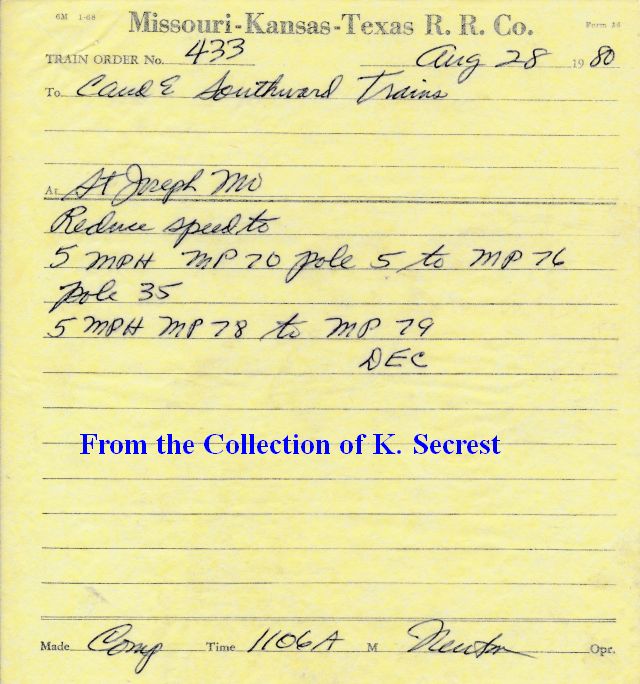 6M 1-68 Missouri-Kansas-Texas R. R. Co. Form A6
TRAIN ORDER No. 433 Aug 28 1980
To C and E Southward Trains
At St Joseph Mo
Reduce speed to
5 MPH MP 70 pole 5 to MP 76
pole 35
5 MPH MP 78 to MP 79
DEC
From the Collection of K. Secrest
Made Comp Time 1106 A M Newton Opr.